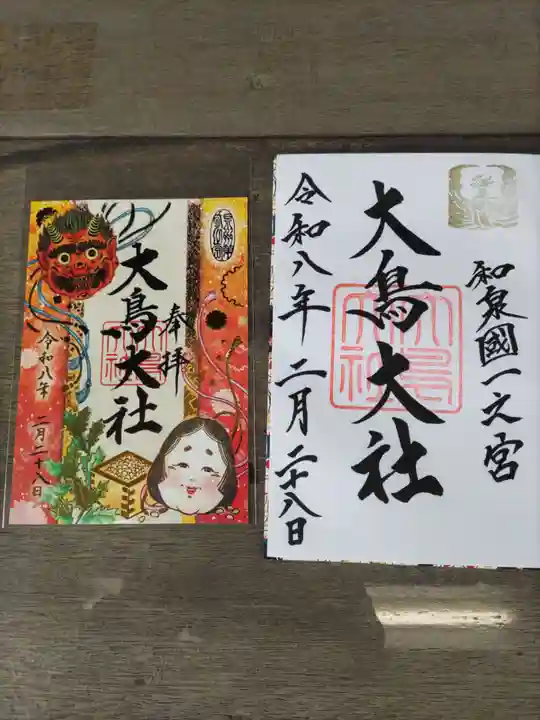 奉拝
大鳥大社
令和八年 二月二十八日
和泉國一之宮
大鳥大社
大鳥大社
令和八年二月二十八日